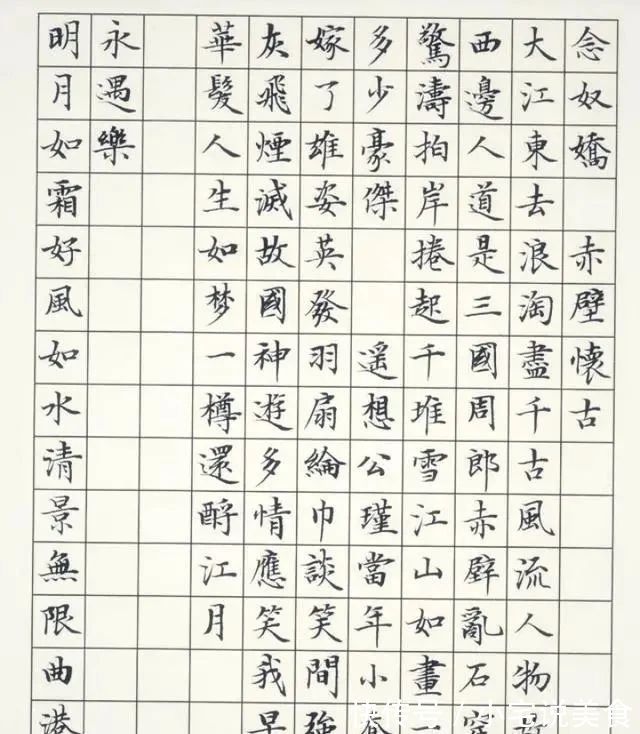 念奴嬌 赤壁懷古
大江東去浪淘盡千古風流人物
西邊人道是三國周郎赤壁亂石
驚濤拍岸捲起千堆雪江山如畫一
多少豪傑 遥想公瑾當年小
嫁了雄姿英發羽扇綸巾談笑間強
灰飛煙滅故國神遊多情應笑我早
華髮人生如梦一樽還酹江月
永遇樂
明月如霜好風如水清景無限曲港
快传号 / 小宅说美食